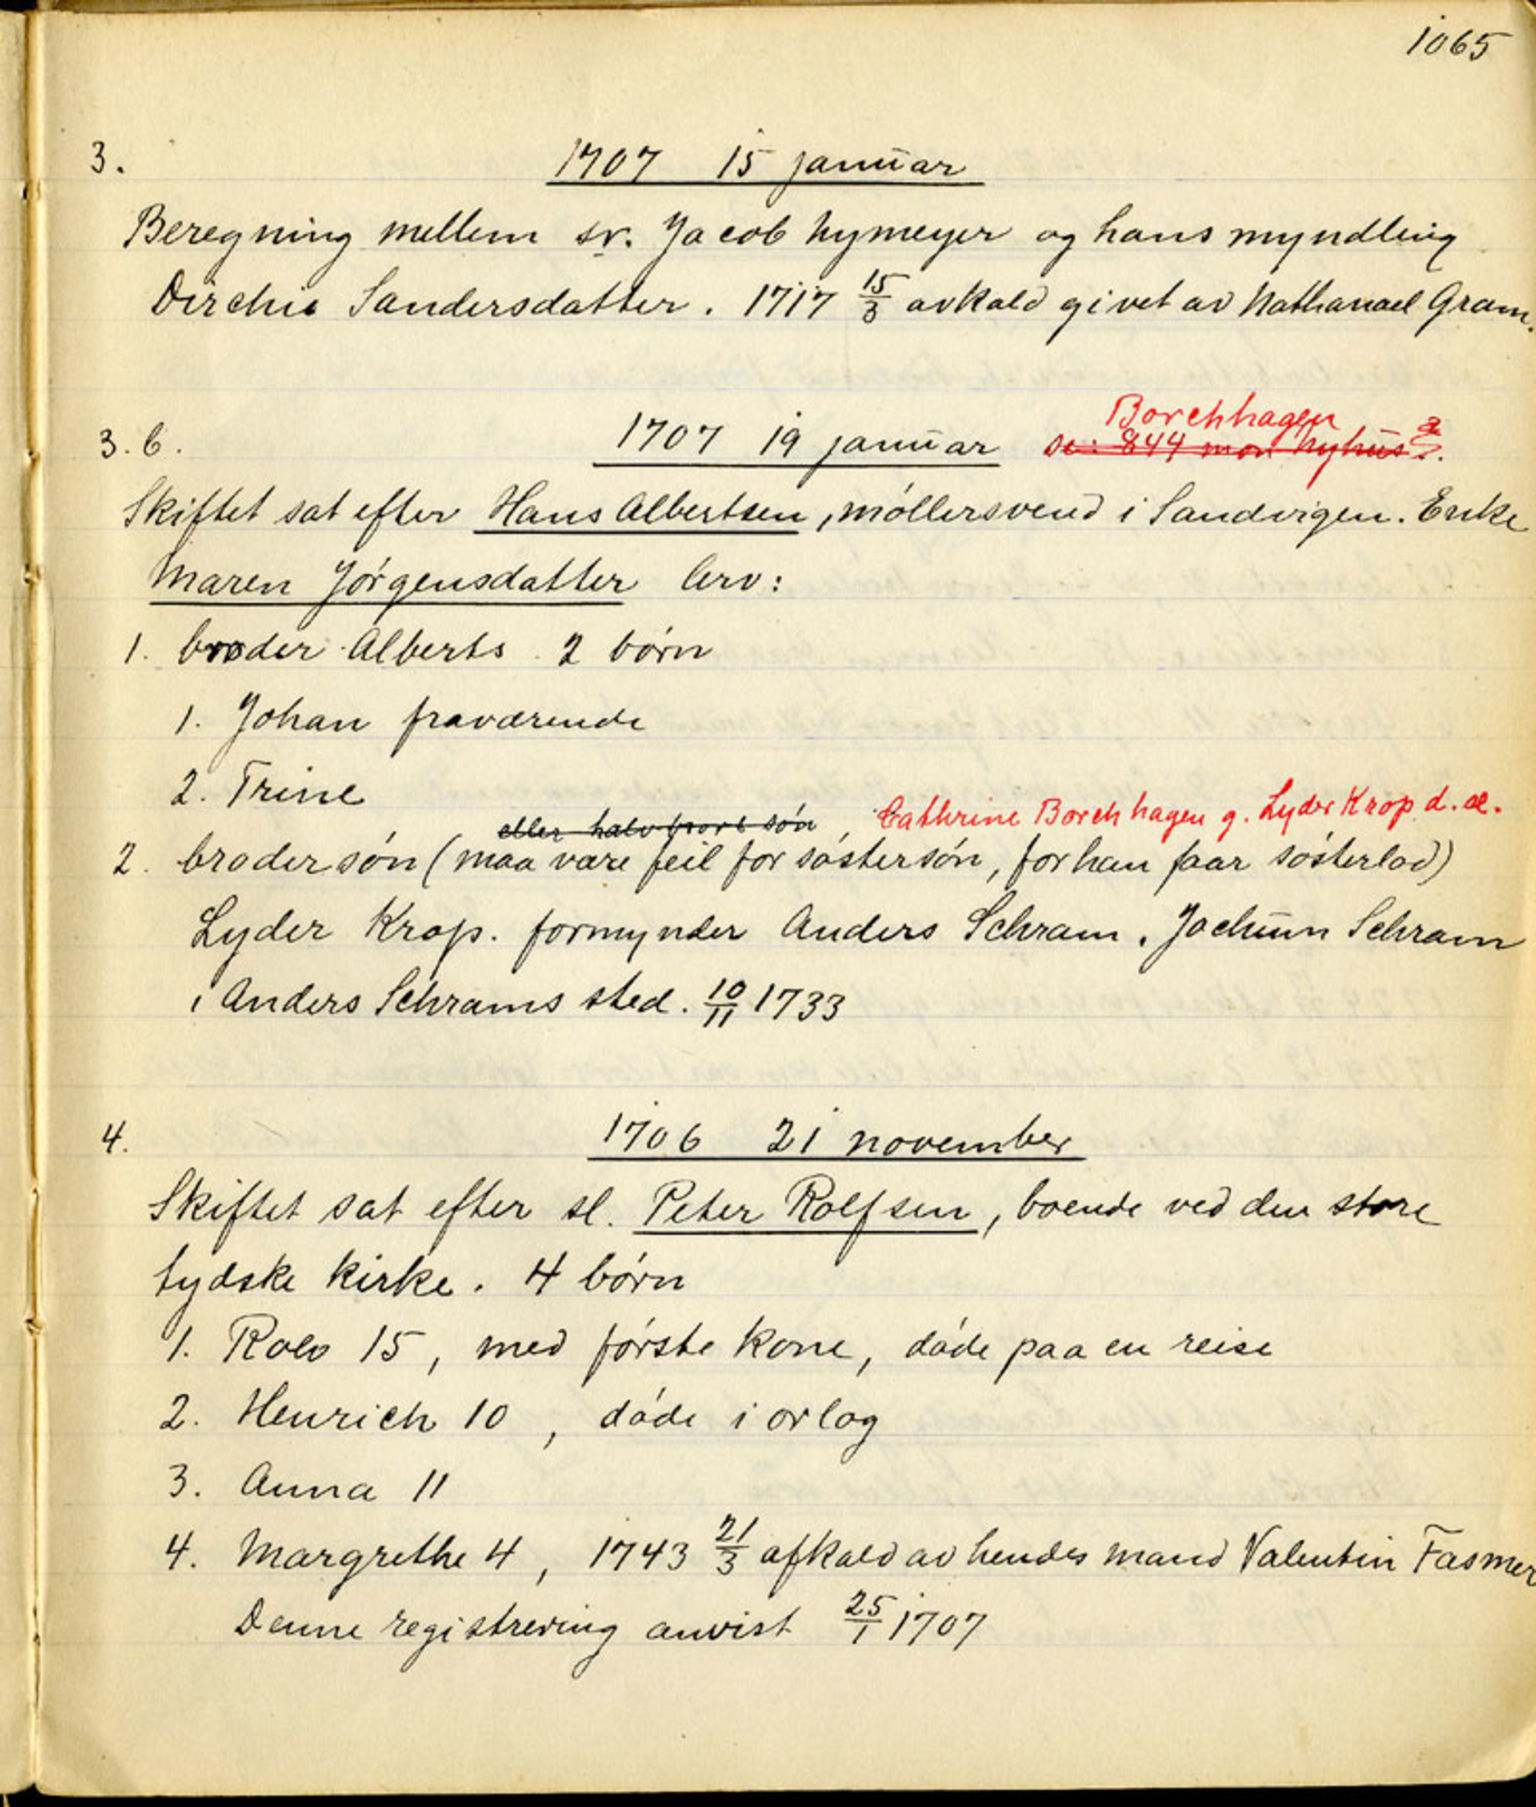 1065
3. 1707 15 januar
Beregning mellem sr. Jacob Nymeyer og hans myndling
Dirchie Sandersdatter. 1717 15/3 avkald givet av Nathanael Gram.
Borchhagen
3.b. 1707 19 januar se: 844 mon Nyhus?
Skiftet sat efter Hans Albertsen, møllersvend i Sandvigen. Enke
Maren Jørgensdatter Arv:
1. broder Alberts 2 børn
1. Johan fraværende
2. Trine
eller halvbrors søn, Cathrine Borchhagen g. Lyder Krop d. æ.
2. brodersøn (maa være feil for søstersøn, for han faar søsterlod)
Lyder Krop. formynder Anders Schram. Jochum Schram
i Anders Schrams sted. 10/11 1733
4. 1706 21 november
Skiftet sat efter sl. Peter Rolfsen, boende ved den store
tydske kirke. 4 børn
1. Rolv 15, med første kone, døde paa en reise
2. Henrich 10, døde i orlog
3. Anna 11
4. Margrethe 4, 1743 21/3 afkald av hendes mand Valentin Fasmer
Denne registrering anvist 25/1 1707